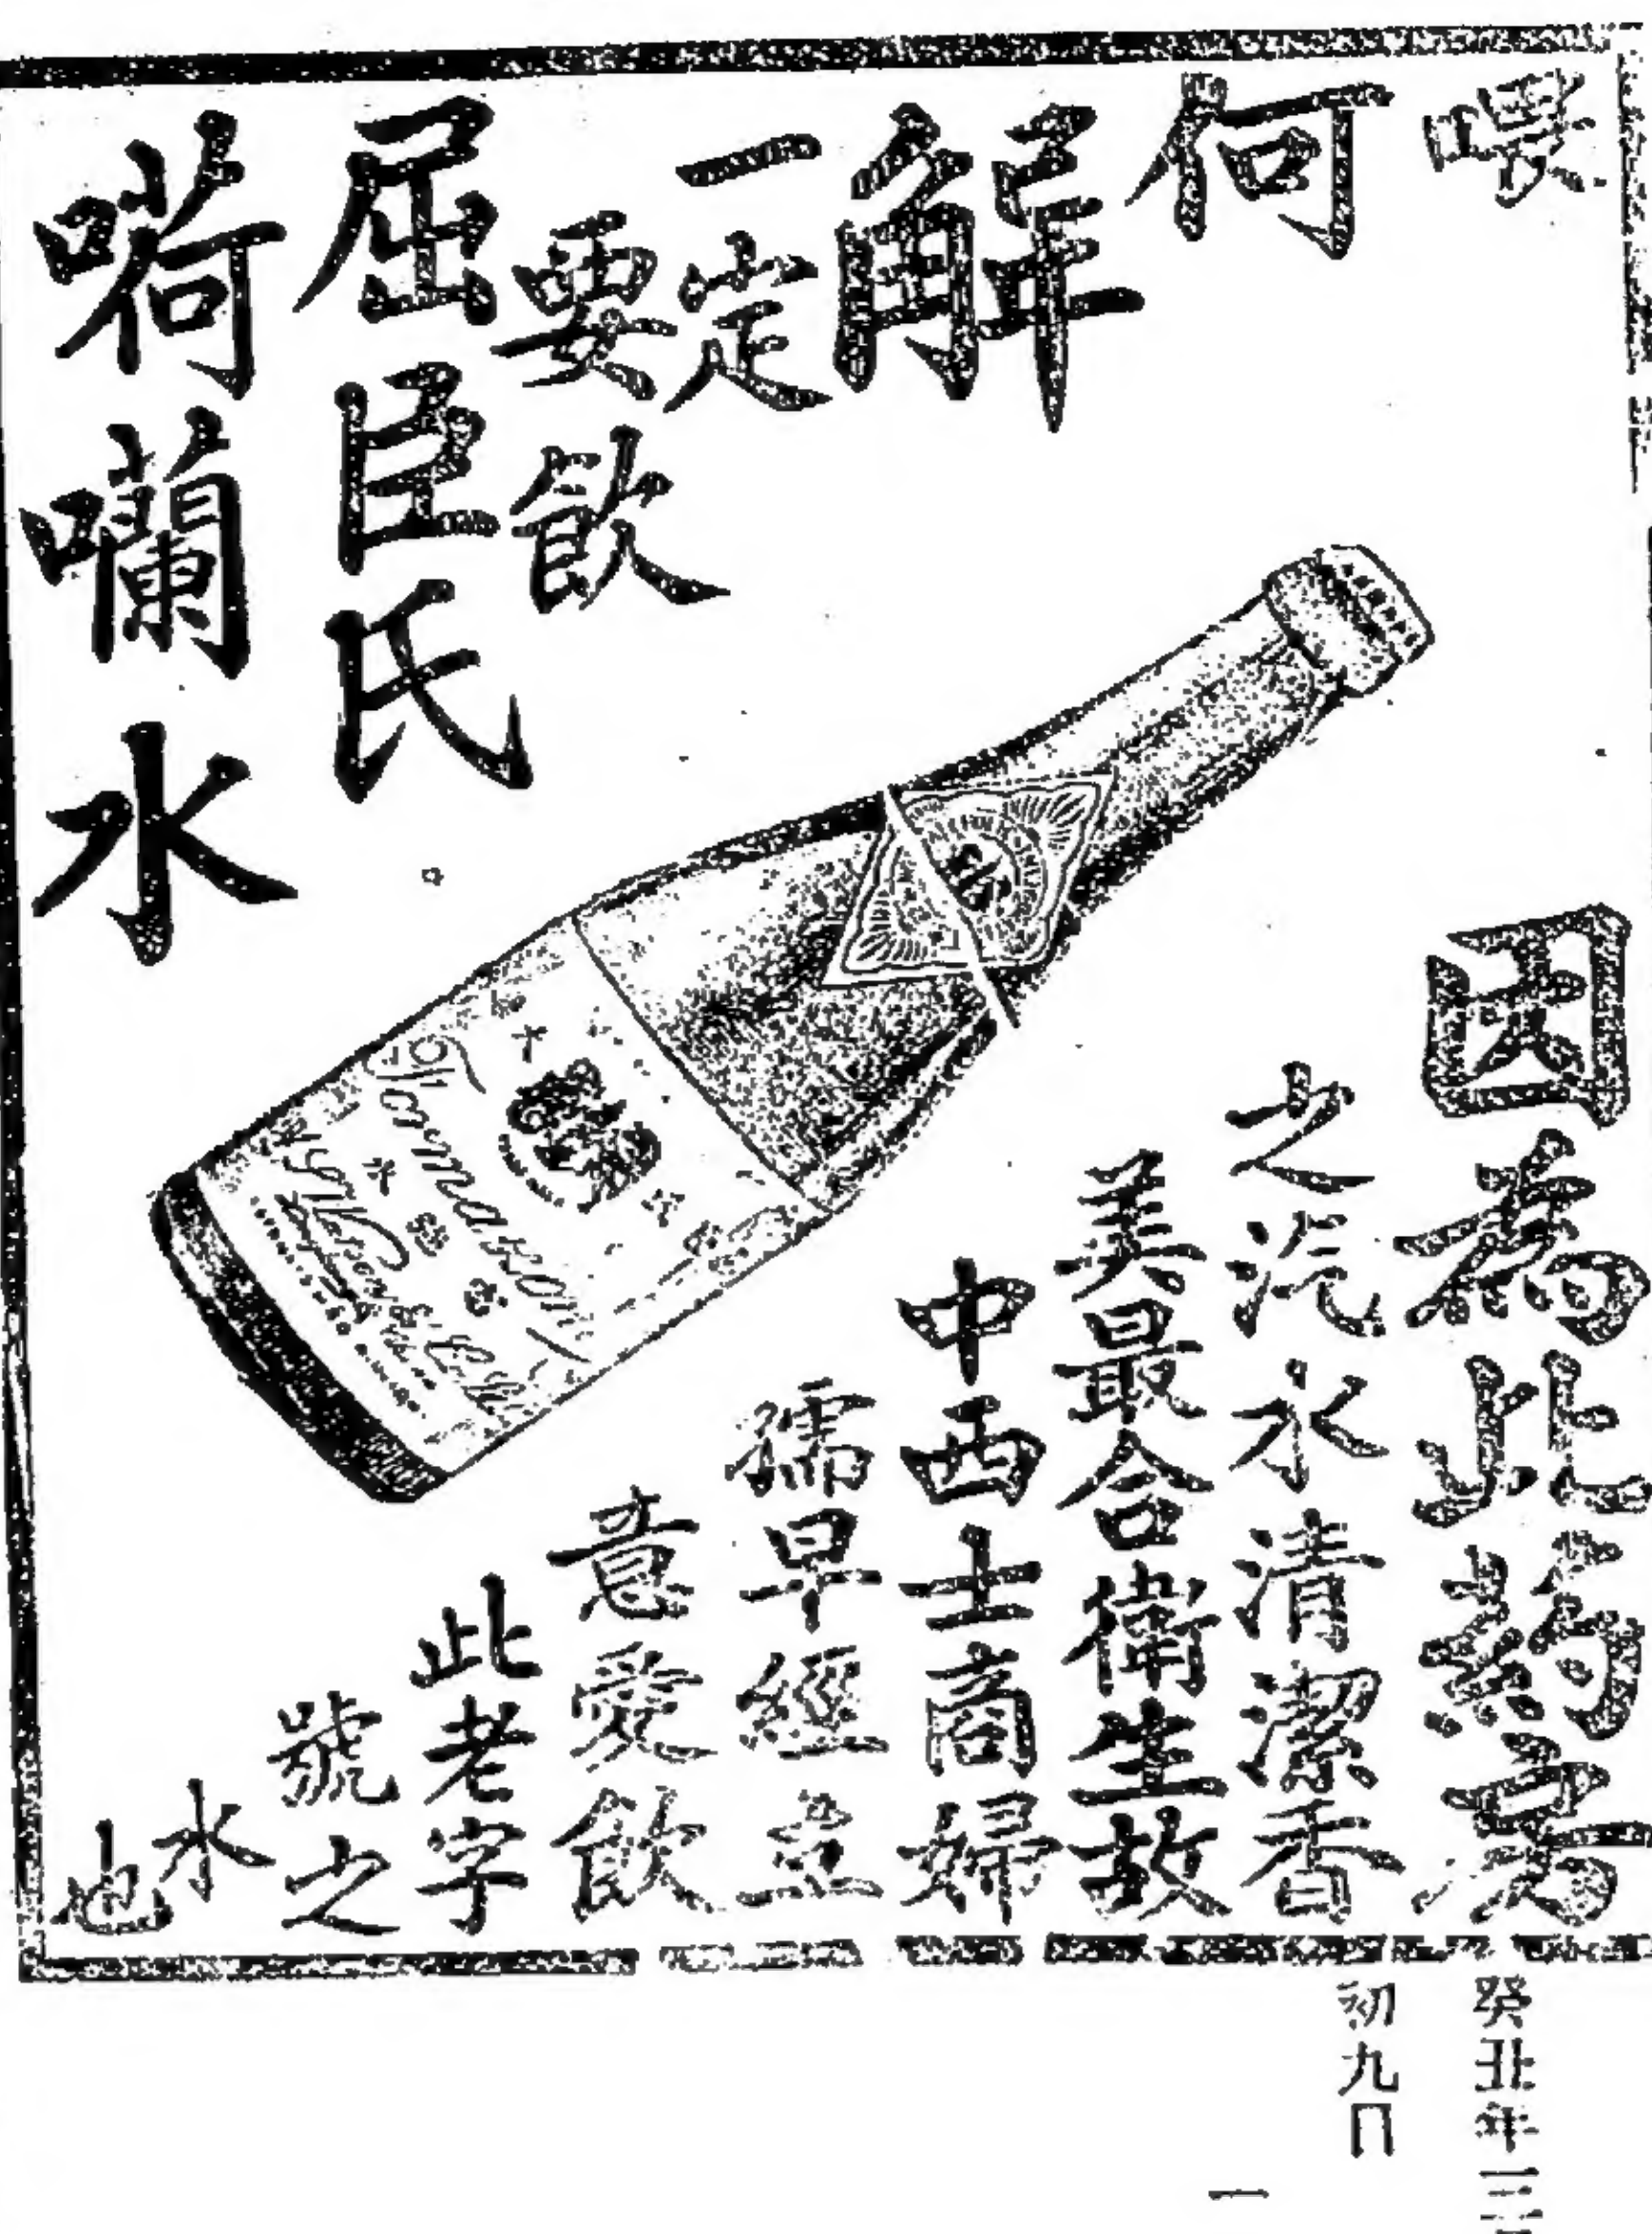 喂
何
解
一定
要飲
屈臣氏
嗬囒水
因為此葯房
之汽水清潔香
美最合衛生故
中西士商婦
孺早經立
意愛飲
此老字
號之
水
也
Tormanson
水
癸丑年三
初九日
一